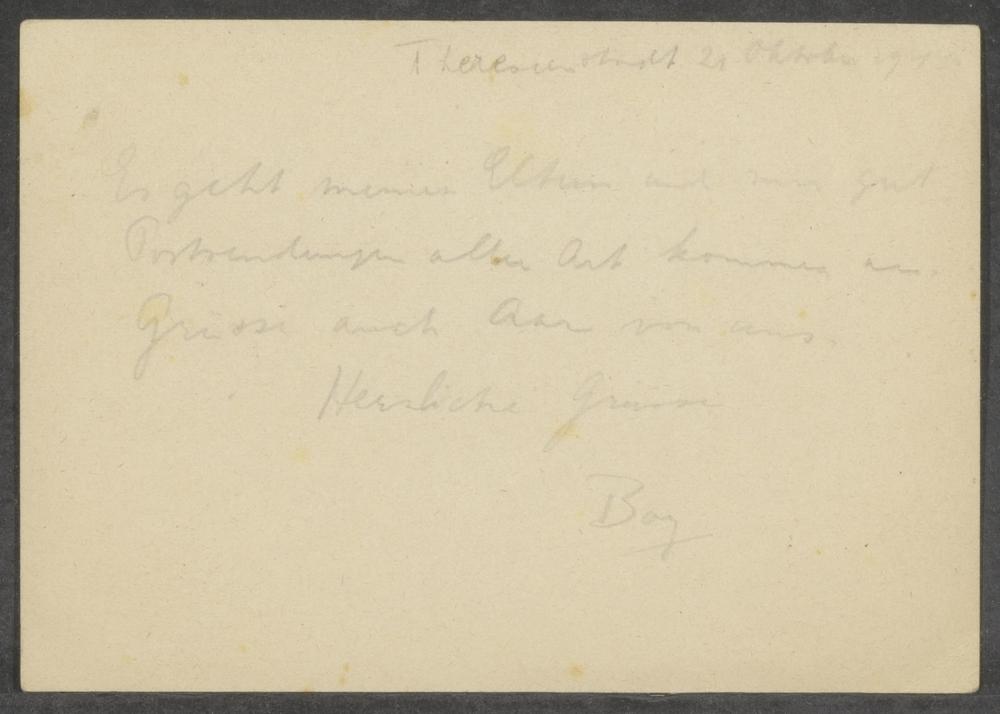 Theresienstadt 21 Oktober
Es geht meinen Eltern und mir gut
Postsendungen aller Art kommen an.
Grüsse auch von uns.
Herzliche Grüsse